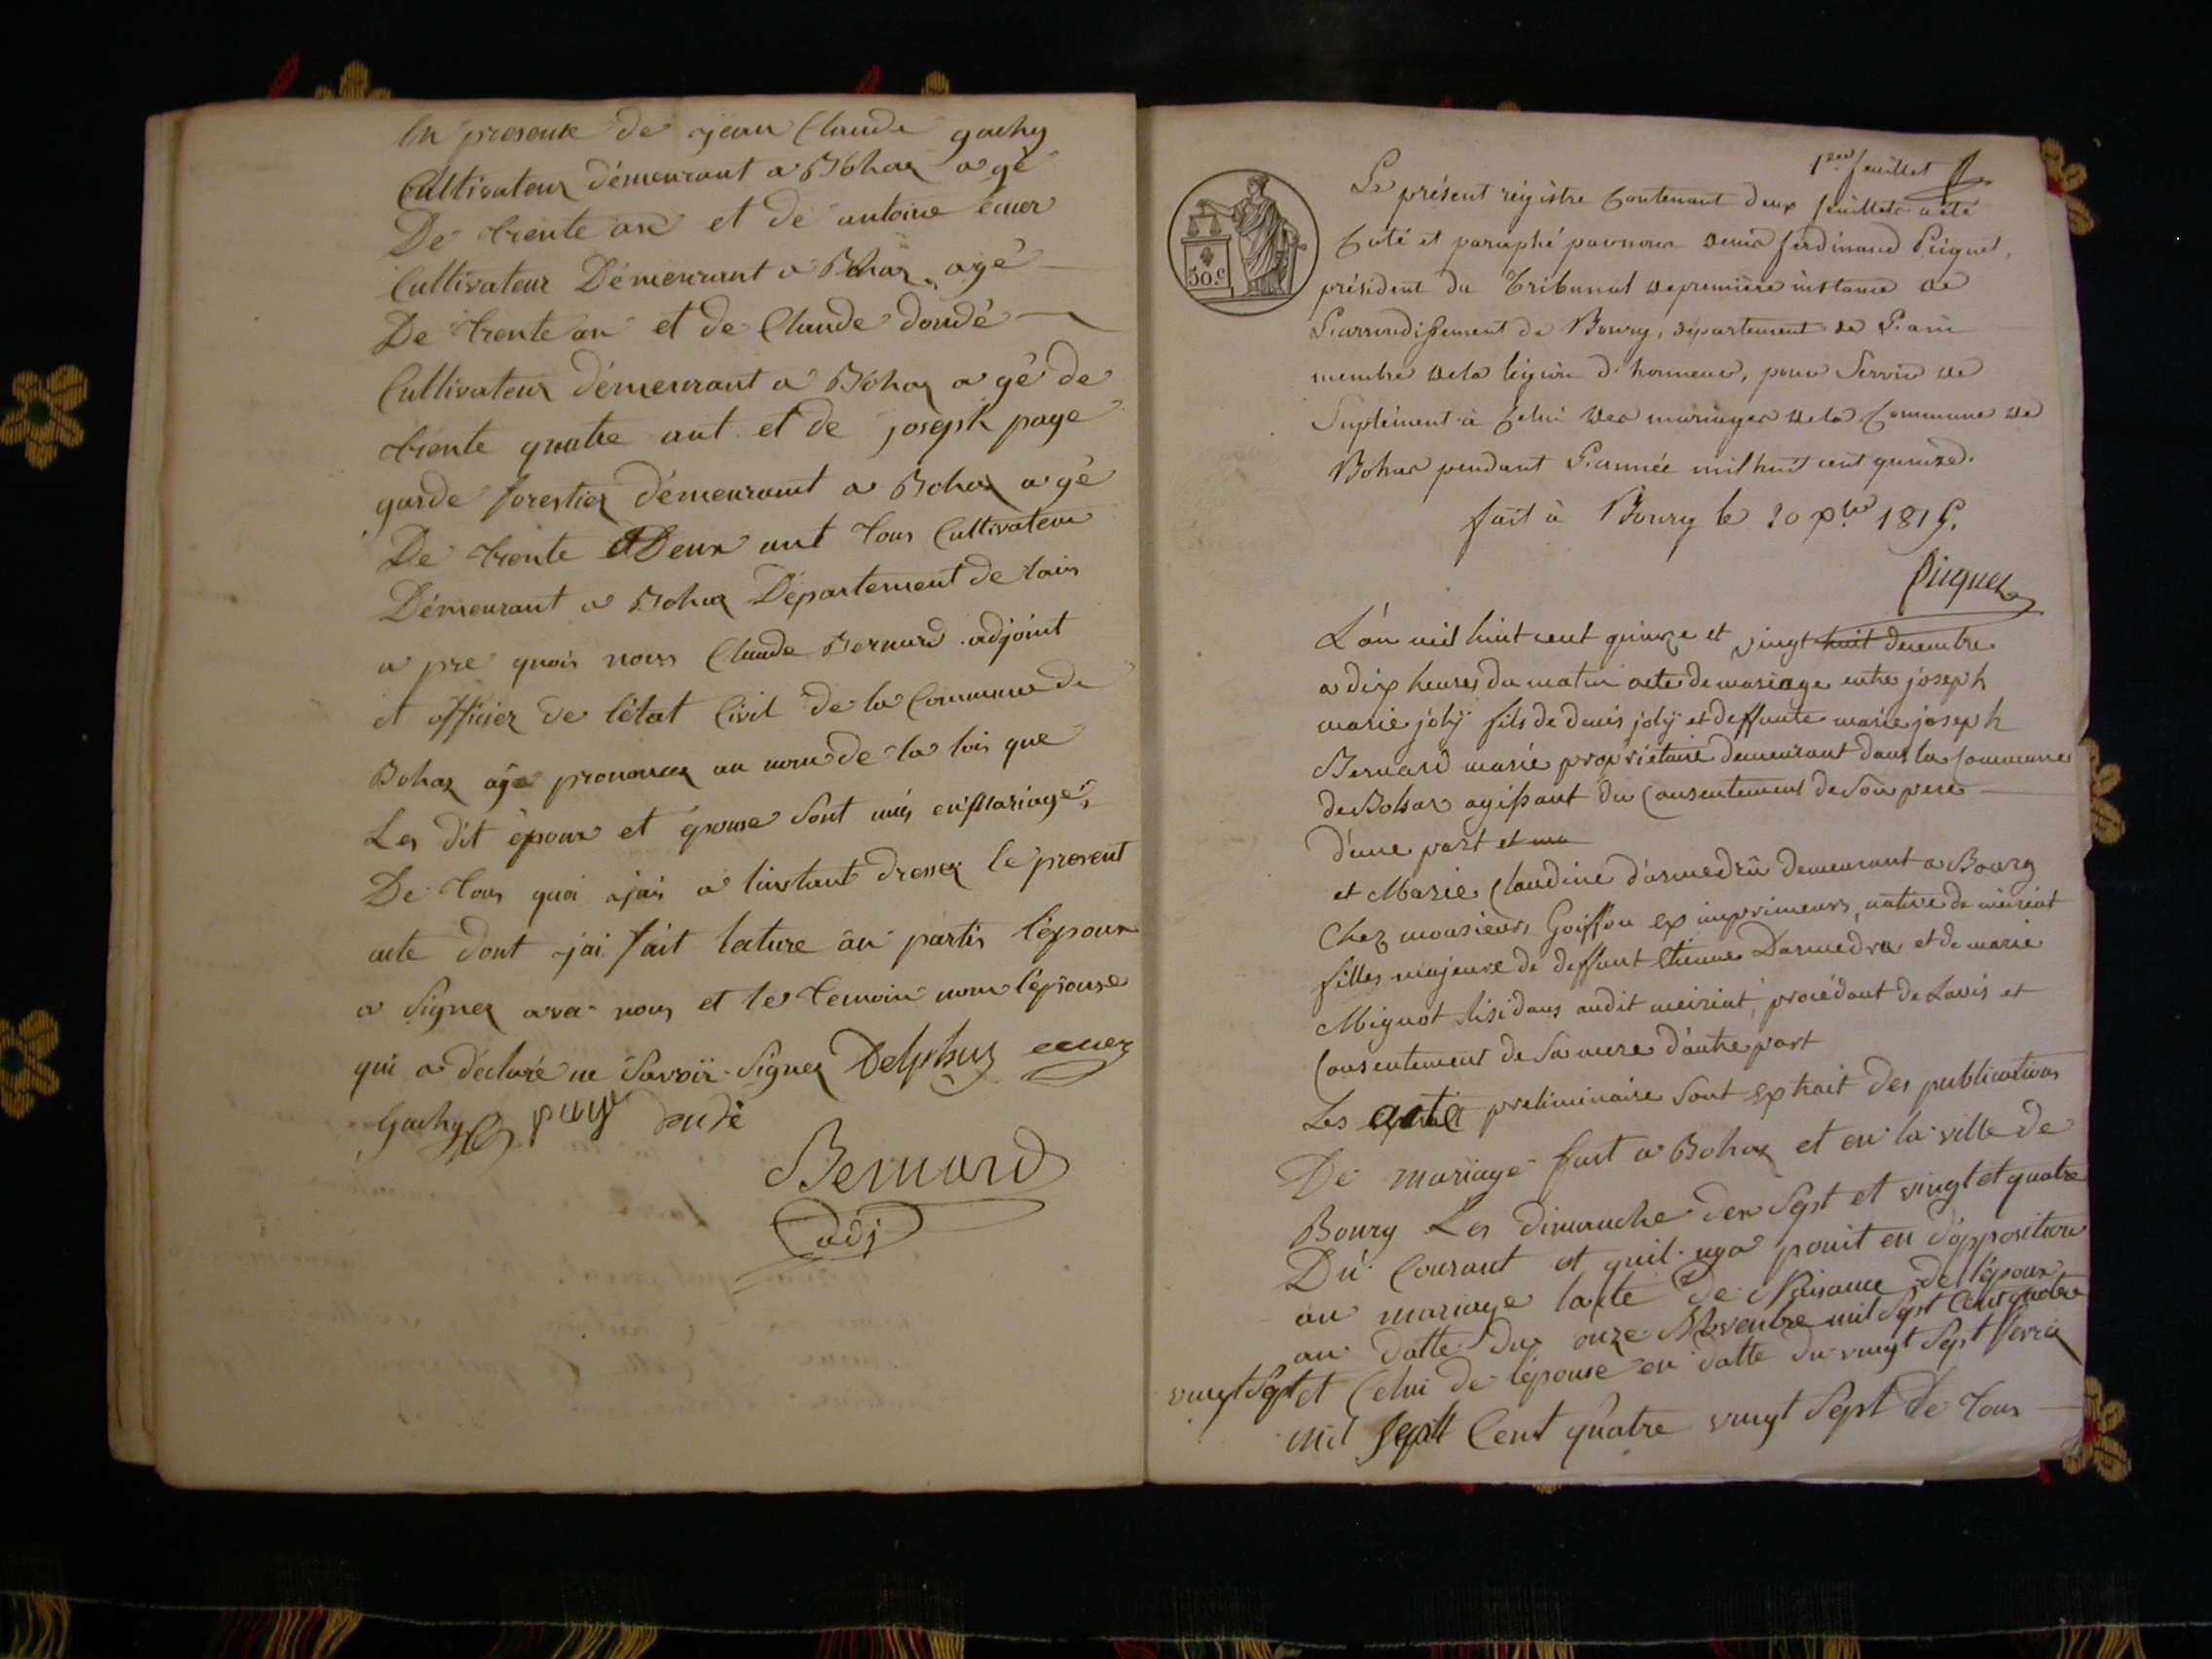 En presence de jean Claude gachy
Cultivateur démeurant a Bohaz a gé
De trente ans et de antoine ecuer
Cultivateur Démeurant a Bohaz agé
De trente an et de Claude doudé
Cultivateur démeurant a Bohaz a gé de
trente quatre ant et de joseph page
garde forestier démeurant a Bohaz a gé
De trente Deux ant tous Cultivateur
Démeurant a Bohaz Département de lain
a pre quois nous Claude Bernard adjoint
et officier de létat Civil de la Commune de
Bohaz aja prononcer au nom de la lois que
Les dit époux et épouse sont unis en mariage,
De tous quoi ajais a linstant dresser le present
acte dont jai fait lecture au partis lépoux
a signer avec nous et le temoin nom lépouse
qui a declaré ne savoir signer Delphus ecuer
Gachy page doudé
Bernard
adj
1er feuillet
50.c
Le présent régistre Contenant deux feuillets a été
Coté et paraphé par nous denis ferdinand Piquet,
président du Tribunal de première instance de
L'arrondissement de Bourg, département de L'ain
membre de la légion d'honneur, pour Servir de
Suplément à Celui des mariages de la Commune de
Bohas pendant L'année mil huit cent quinze.
fait à Bourg le 20 xbre 1815.
Piquet
L'an mil huit cent quinze et vingt huit decembre
a dix heures du matin acte de mariage entre joseph
marie joly fils de denis joly et deffunte marie joseph
Bernard marié propriétaire demeurant dans la Commune
de Bohas agissant du Consentement de Son pere
d'une part et ma
et Marie Claudine d'armedru demeurant a Bourg
Chez monsieur Goiffon ex imprimeurs, native de meiriat
filles majeure de deffunt Etienne Darmedru et de marie
Mignot Residans audit meiriat, procédant de Lavis et
Consentement de Sa mere d'autre part
Les acte preliminaire sont extrait des publications
De mariage fait a Bohaz et en la ville de
Bourg Les dimanche dix sept et vingt et quatre
Du Courant et quil nya point eu dopposition
au mariage lacte de Naisance de lépoux
au datte du onze Novembre mil sept Cent quatre
vingt sept et Celui de lépouse en datte du vingt sept fevrier
mil sept Cent quatre vingt sept De tous